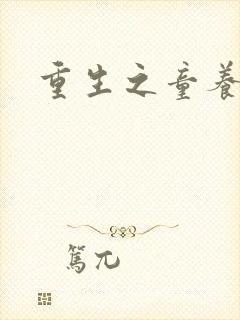 重生之童养
篤兀